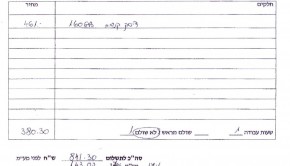 חלקים מחיר
דיסק קשיח 160GB 461-
שעות עבודה 1 שולם מראש / לא שולם 380.30
סה"כ לתשלום 841.30 ש"ח לפני מע"מ